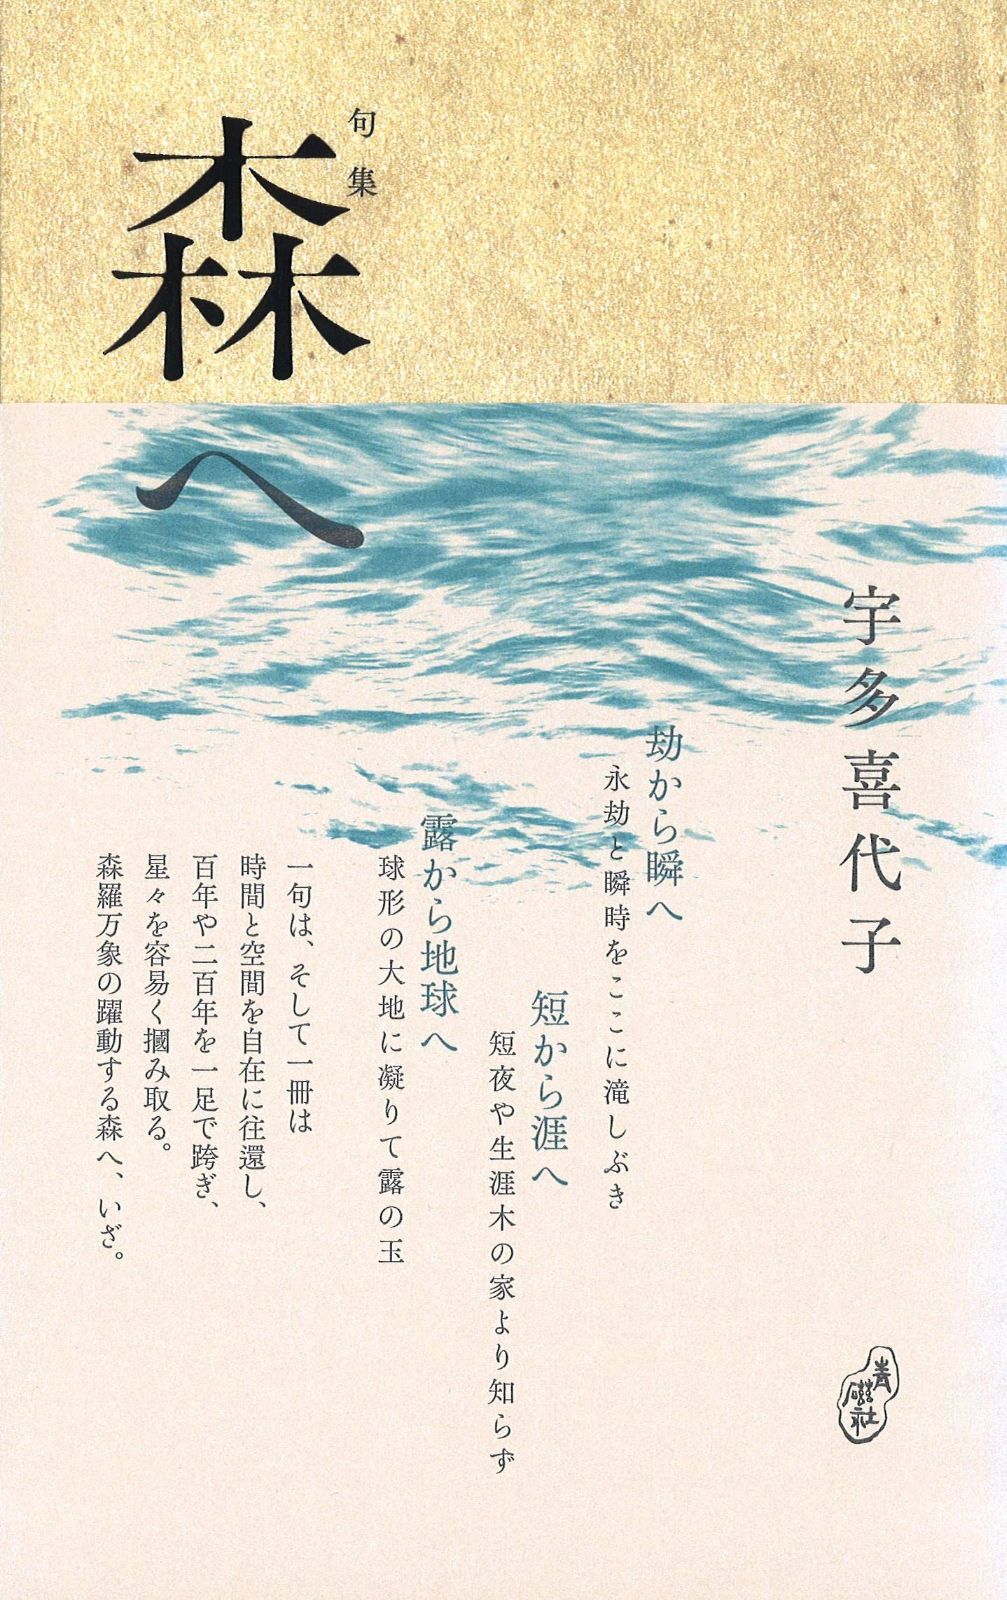 句集
森へ
宇多喜代子
劫から瞬へ
永劫と瞬時をここに滝しぶき
短から涯へ
短夜や生涯木の家より知らず
露から地球へ
球形の大地に凝りて露の玉
一句は、そして一冊は
時間と空間を自在に往還し、
百年や二百年を一足で跨ぎ、
星々を容易く摑み取る。
森羅万象の躍動する森へ、いざ。
青磁社